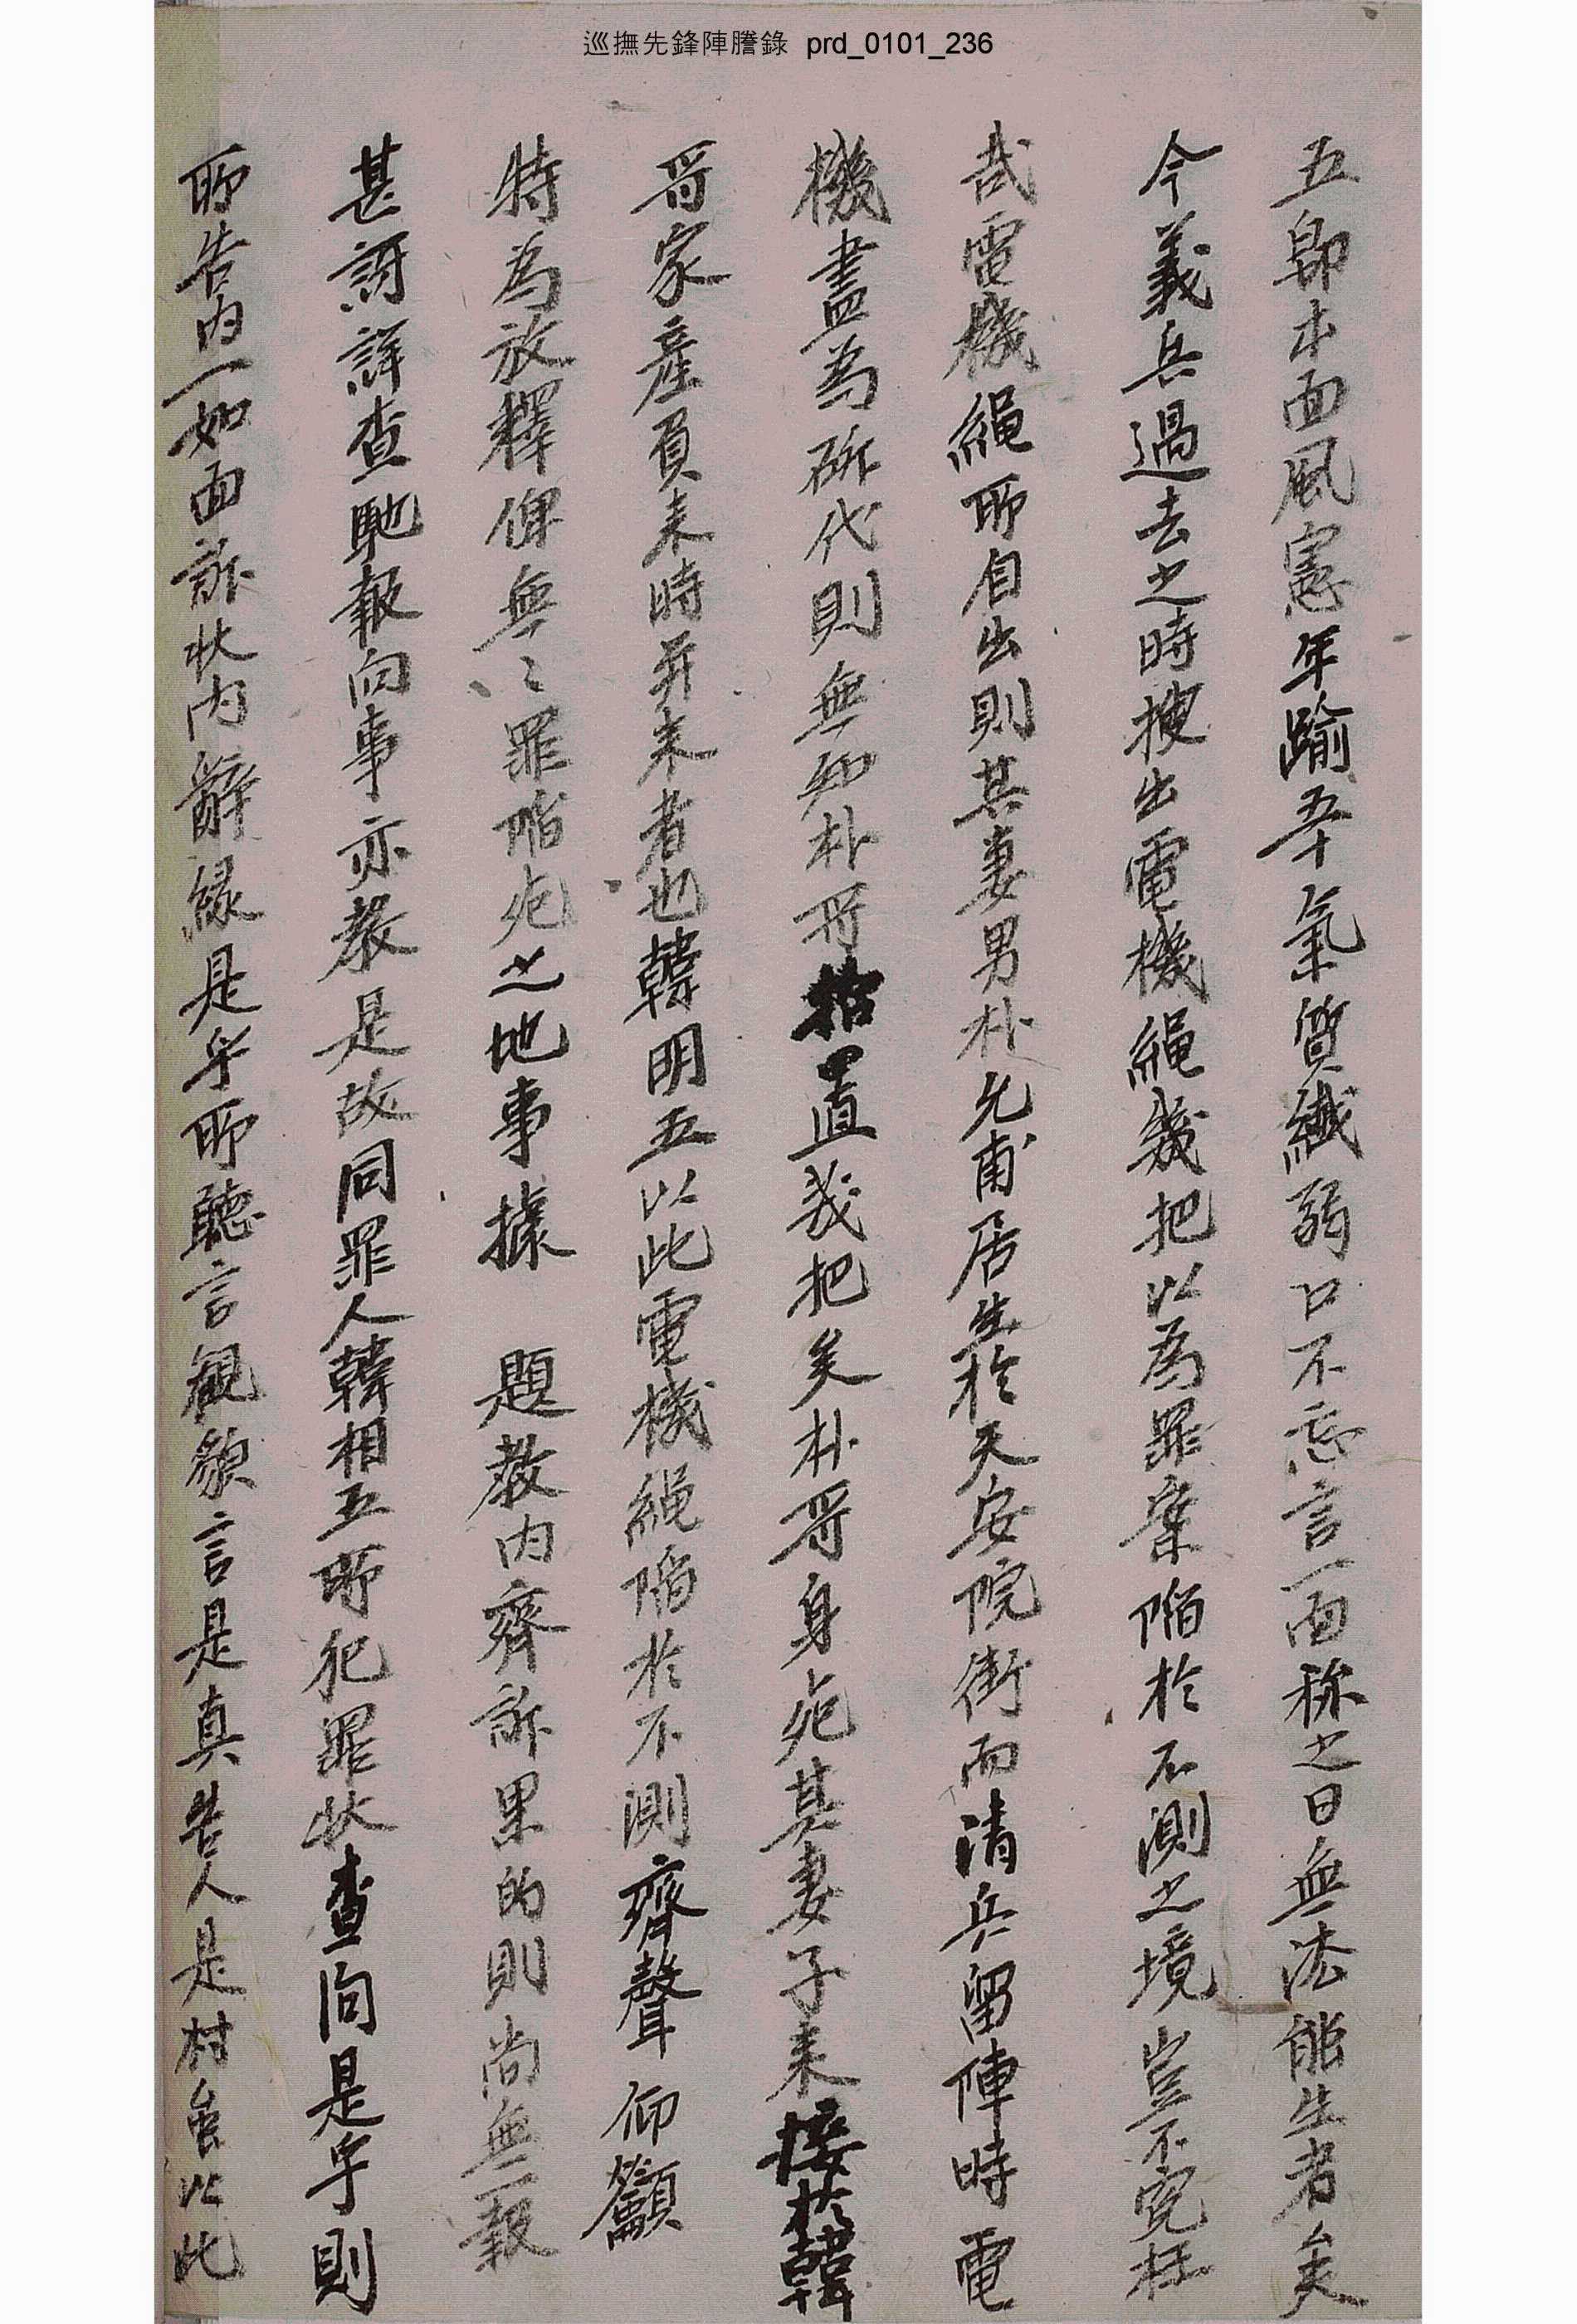 巡撫先鋒陣謄錄 prd_0101_236
五卽本面風憲年踰五十氣質纖弱口不忘言一面称之曰無法能生者矣
今義兵過去之時搜出電機繩幾把以爲罪案陷於不測之境豈不寃枉
哉電機繩所自出則其妻男朴允甫居生於天安院街而清兵留陣時電
機盡爲斫伐則無知朴哥拾置幾把矣朴哥身死其妻子来接於韓
哥家產負来時幷来者也韓明五以此電機繩陷於不測齊聲仰籲
特爲放釋俾無以罪陷死之地事據 題教内齊訴果的則尚無一報
甚訝詳查馳報向事亦教是故同罪人韓相五所犯罪狀查問是乎則
所告内一如面訴狀内辭緣是乎所聽言觀貌言是真告人是村氓以此